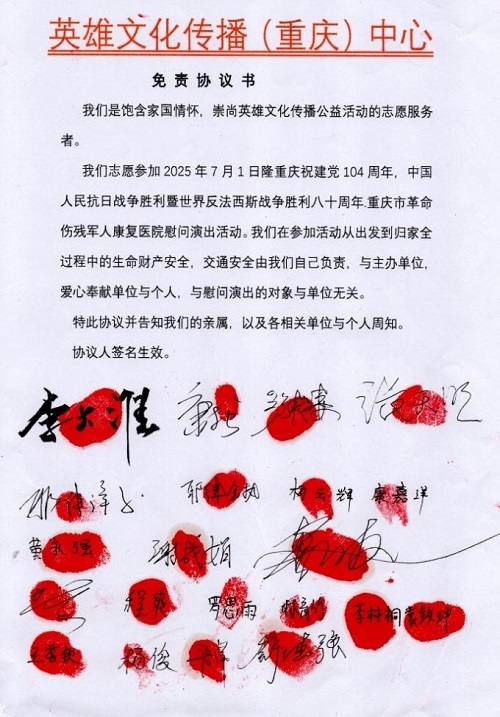 英雄文化传播（重庆）中心
免责协议书
我们是饱含家国情怀，崇尚英雄文化传播公益活动的志愿服务
者。
我们志愿参加 2025 年 7 月 1 日隆重庆祝建党 104 周年，中国
人民抗日战争胜利暨世界反法西斯战争胜利八十周年.重庆市革命
伤残军人康复医院慰问演出活动。我们在参加活动从出发到归家全
过程中的生命财产安全，交通安全由我们自己负责，与主办单位，
爱心奉献单位与个人，与慰问演出的对象与单位无关。
特此协议并告知我们的亲属，以及各相关单位与个人周知。
协议人签名生效。
李大淮
杨云辉 康嘉洋
黄永强
程爽 罗思雨 李林桐
杨俊